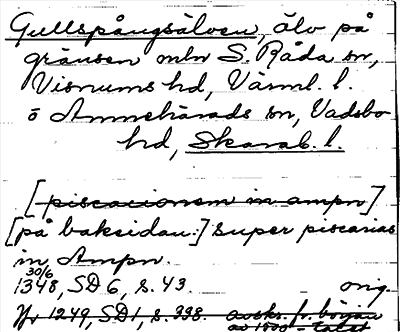 Gullspångsälven, älv på
gränsen mln S. Råda sn,
Visnums hd, Värml. l.
o Amnehärads sn, Vadsbo
hd, Skarab. l.
[piscacionem in ampn]
[på baksidan:] super piscarias
in Ampn.
30/6
1348, SD 6, s. 43. orig.
Yr 1249, SD 1, s. 338. avskr. fr. början
av 1500-talet